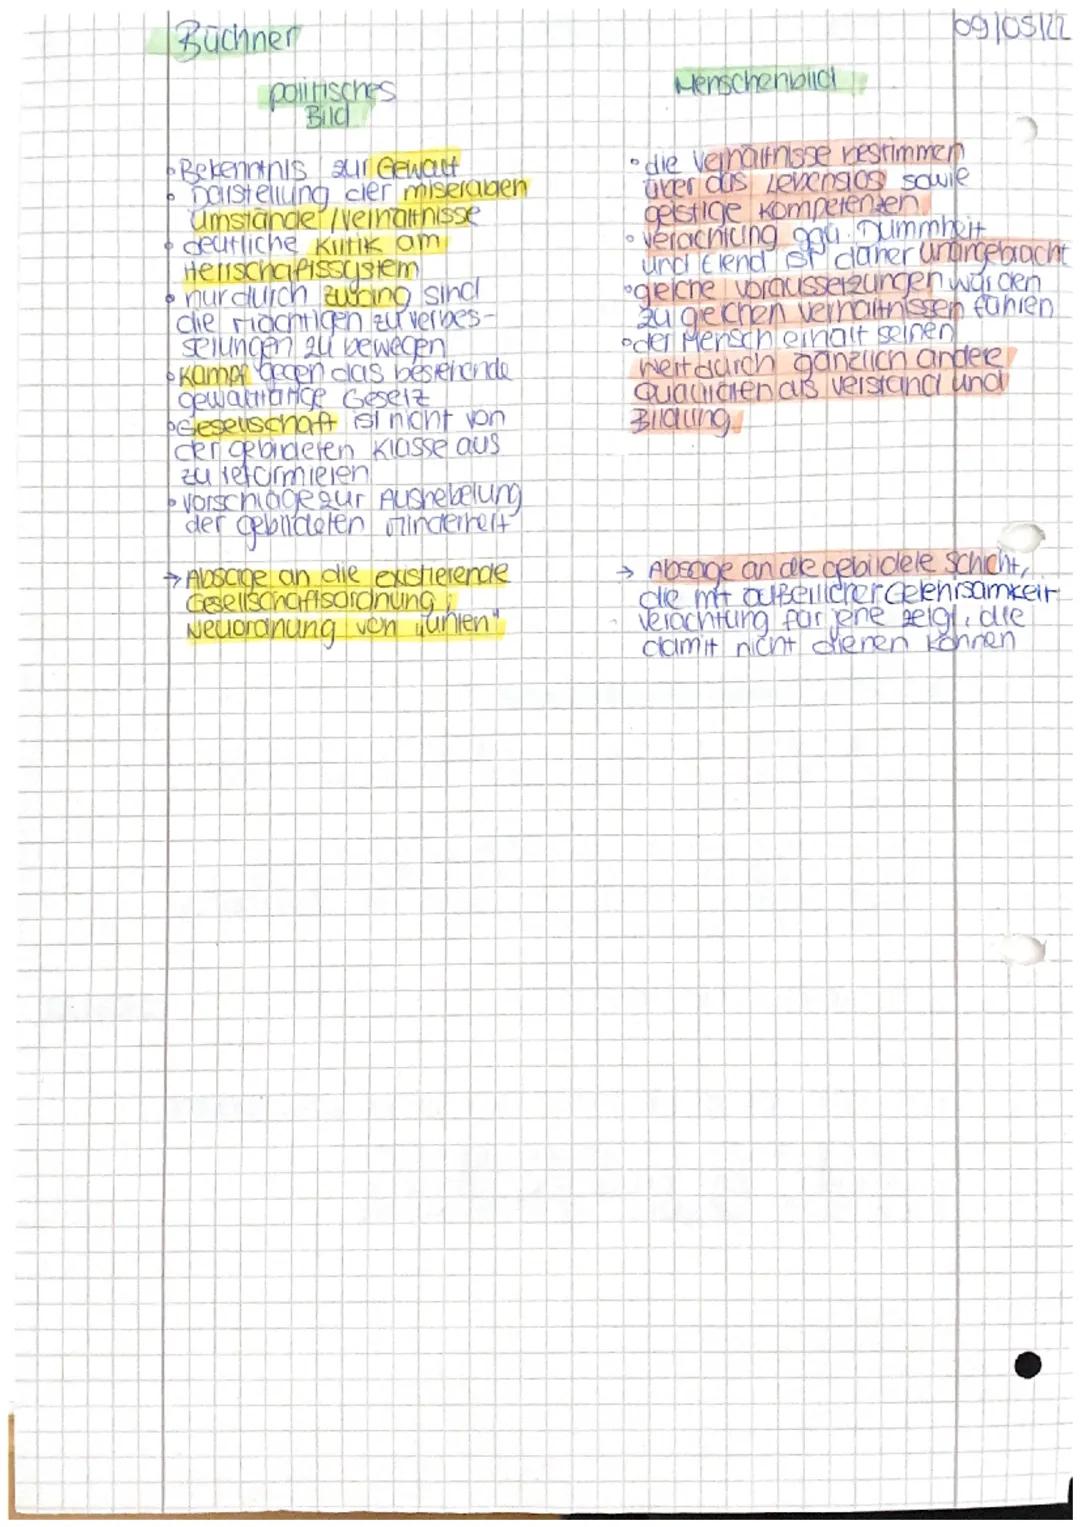 Büchner
09/05/22
politisches
Bild
• Bekenntnis zur Gewalt
• Darstellung der miserablen
Umstände / Verhältnisse
• deutliche Kritik am
Herrschaftssystem
• nur durch Zwang sind
die Mächtigen zu Verbes-
serungen zu bewegen
• Kampf gegen das bestehende
gewalttätige Gesetz
• Gesellschaft ist nicht von
der gebildeten Klasse aus
zu reformieren
• Vorschläge zur Aushebelung
der gebildeten Minderheit
→ Absage an die existierende
Gesellschaftsordnung,
Neuordnung von „unten"
Menschenbild
• die Verhältnisse bestimmen
über das Lebenslos sowie
geistige Kompetenzen
• Verachtung ggü. Dummheit
und Elend ist daher unangebracht
• gleiche Voraussetzungen würden
zu gleichen Verhältnissen führen
• der Mensch erhält seinen
Wert durch gänzlich andere
Qualitäten als Verstand und
Bildung
→ Absage an die gebildete Schicht,
die mit äußerlicher Gelehrsamkeit
Verachtung für jene zeigt, die
damit nicht dienen können